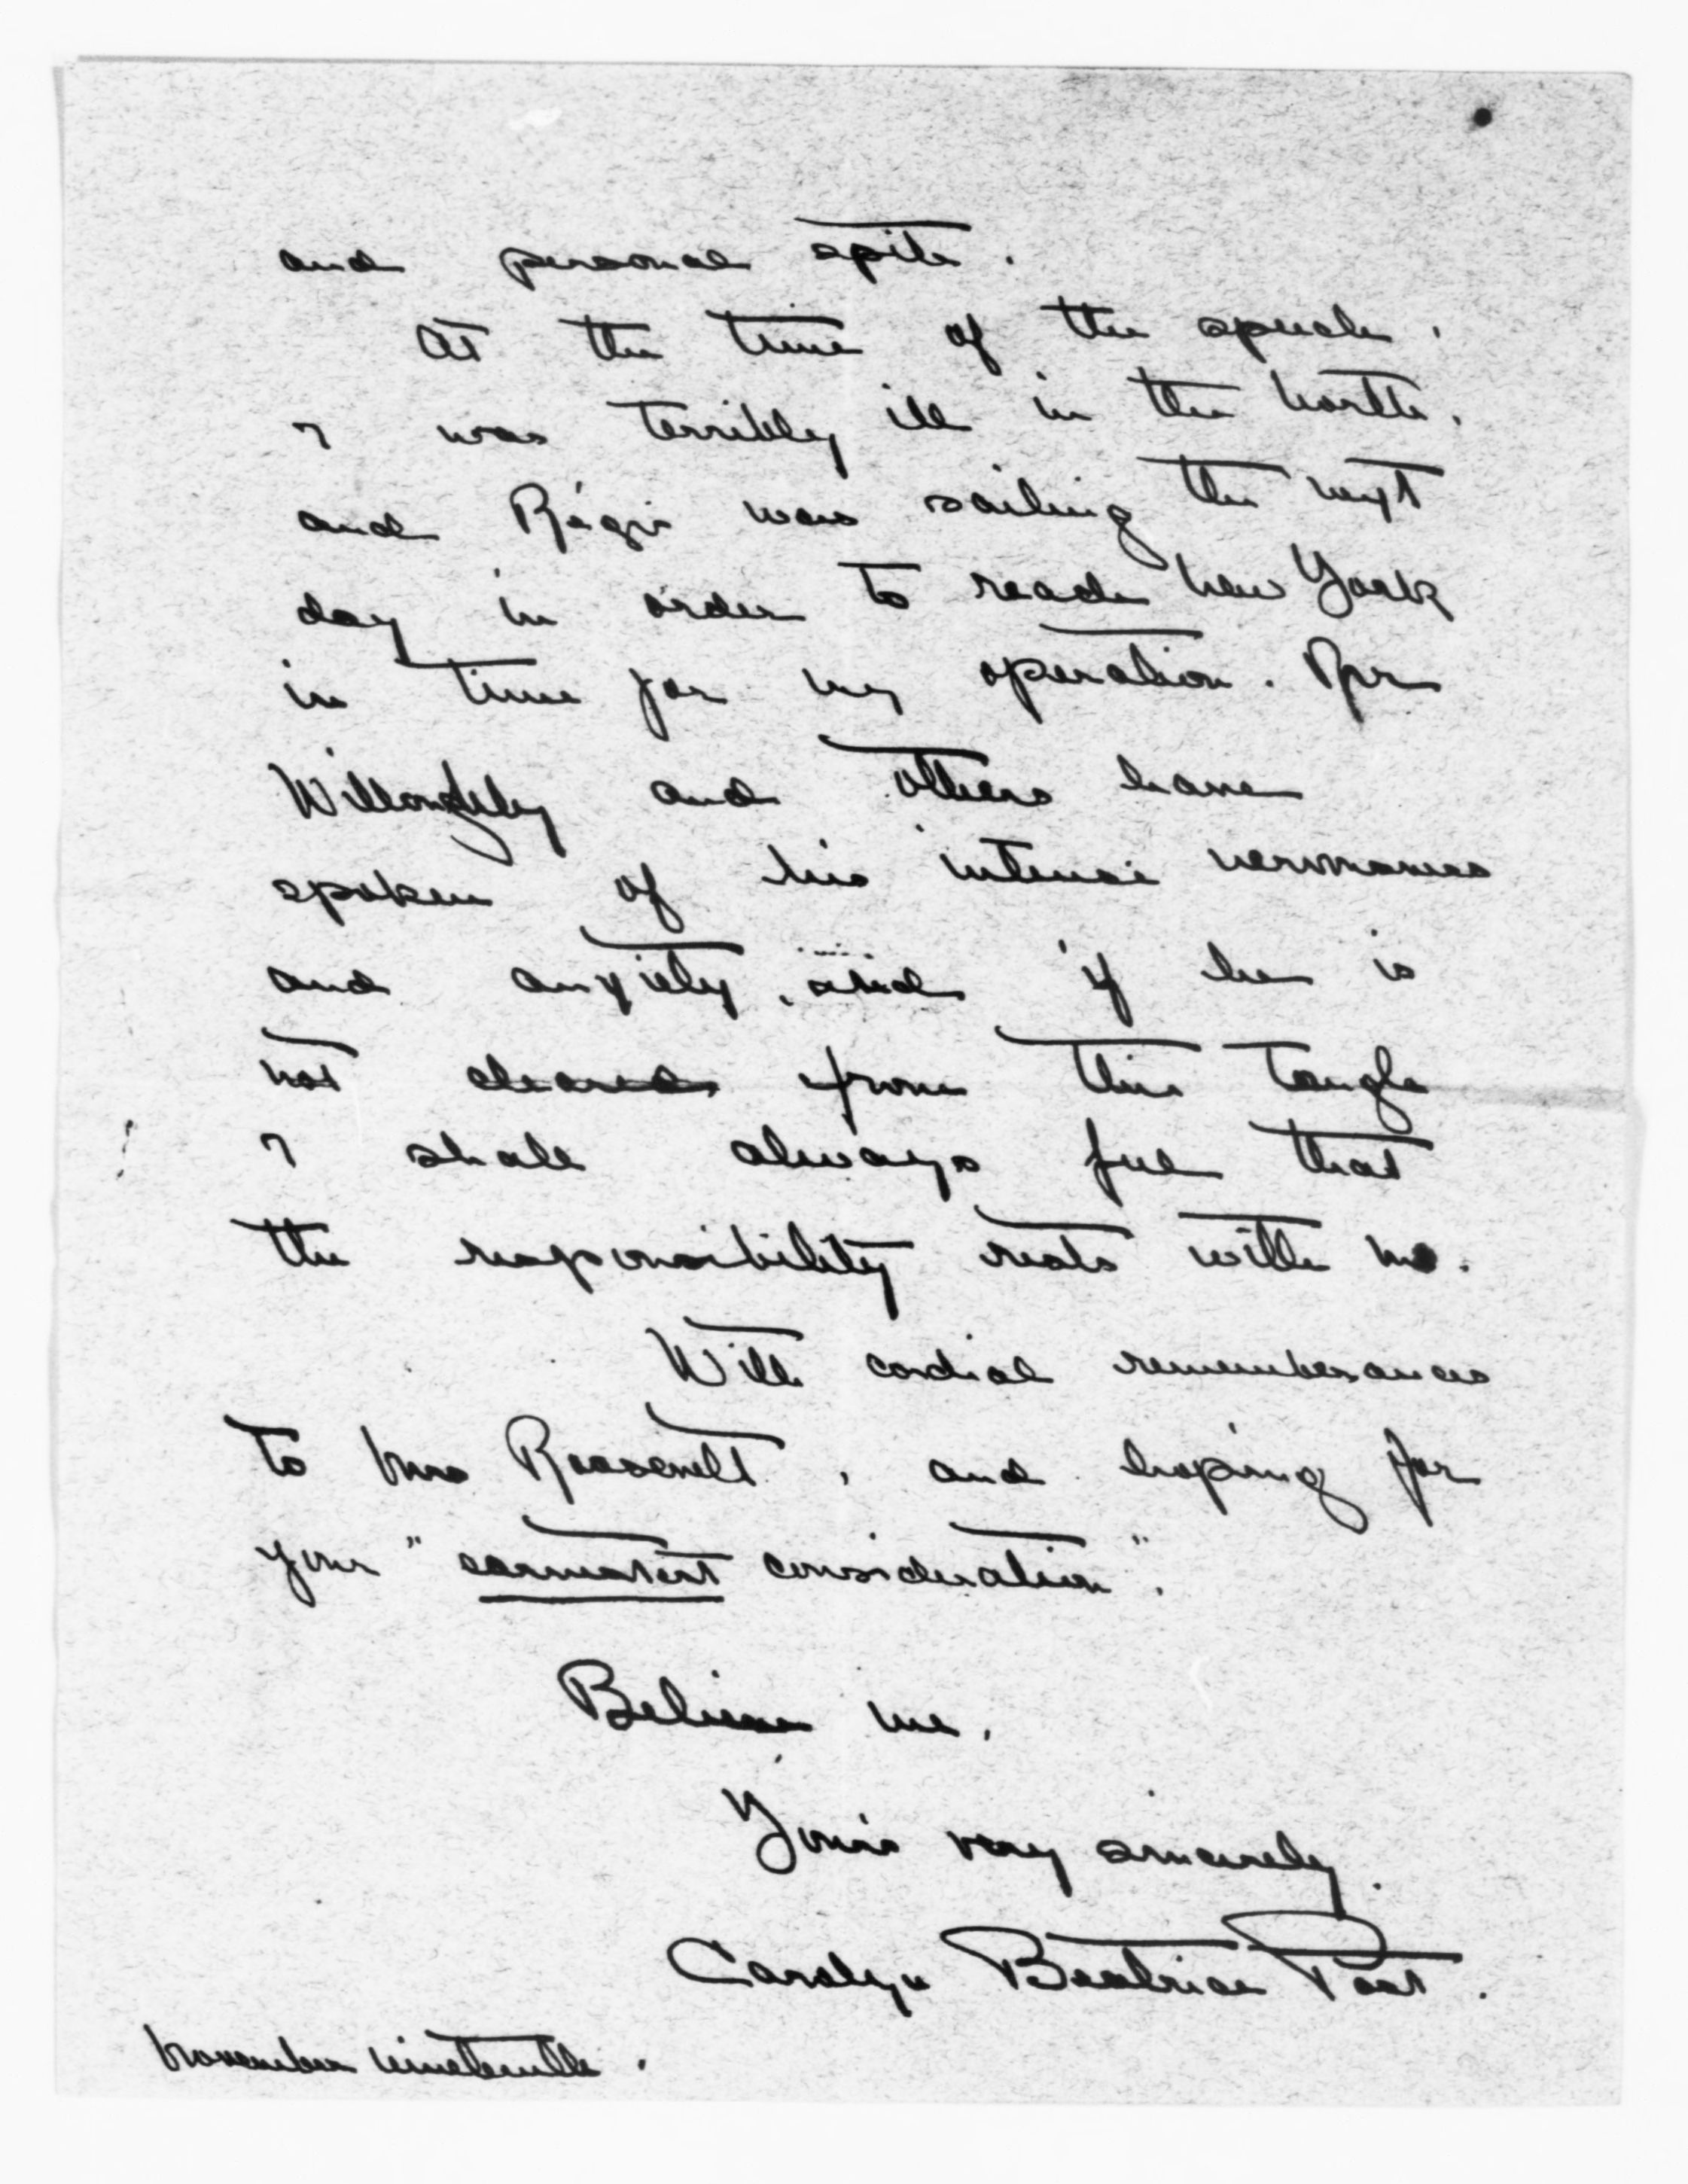 and personal spite.
At the time of the speech,
I was terribly ill in the North,
and Régis was sailing the next
day in order to reach New York
in time for my operation.
Willoughby and others have
spoken of his intense nervousness
and anxiety, and if he is
not cleared from this tangle
I shall always feel that
the responsibility rests with me.
With cordial remembrances
to Mrs Roosevelt, and hoping for
your "earnestest consideration".
Believe me,
Yours very sincerely,
Carolyn Beatrice Post.
November nineteenth.